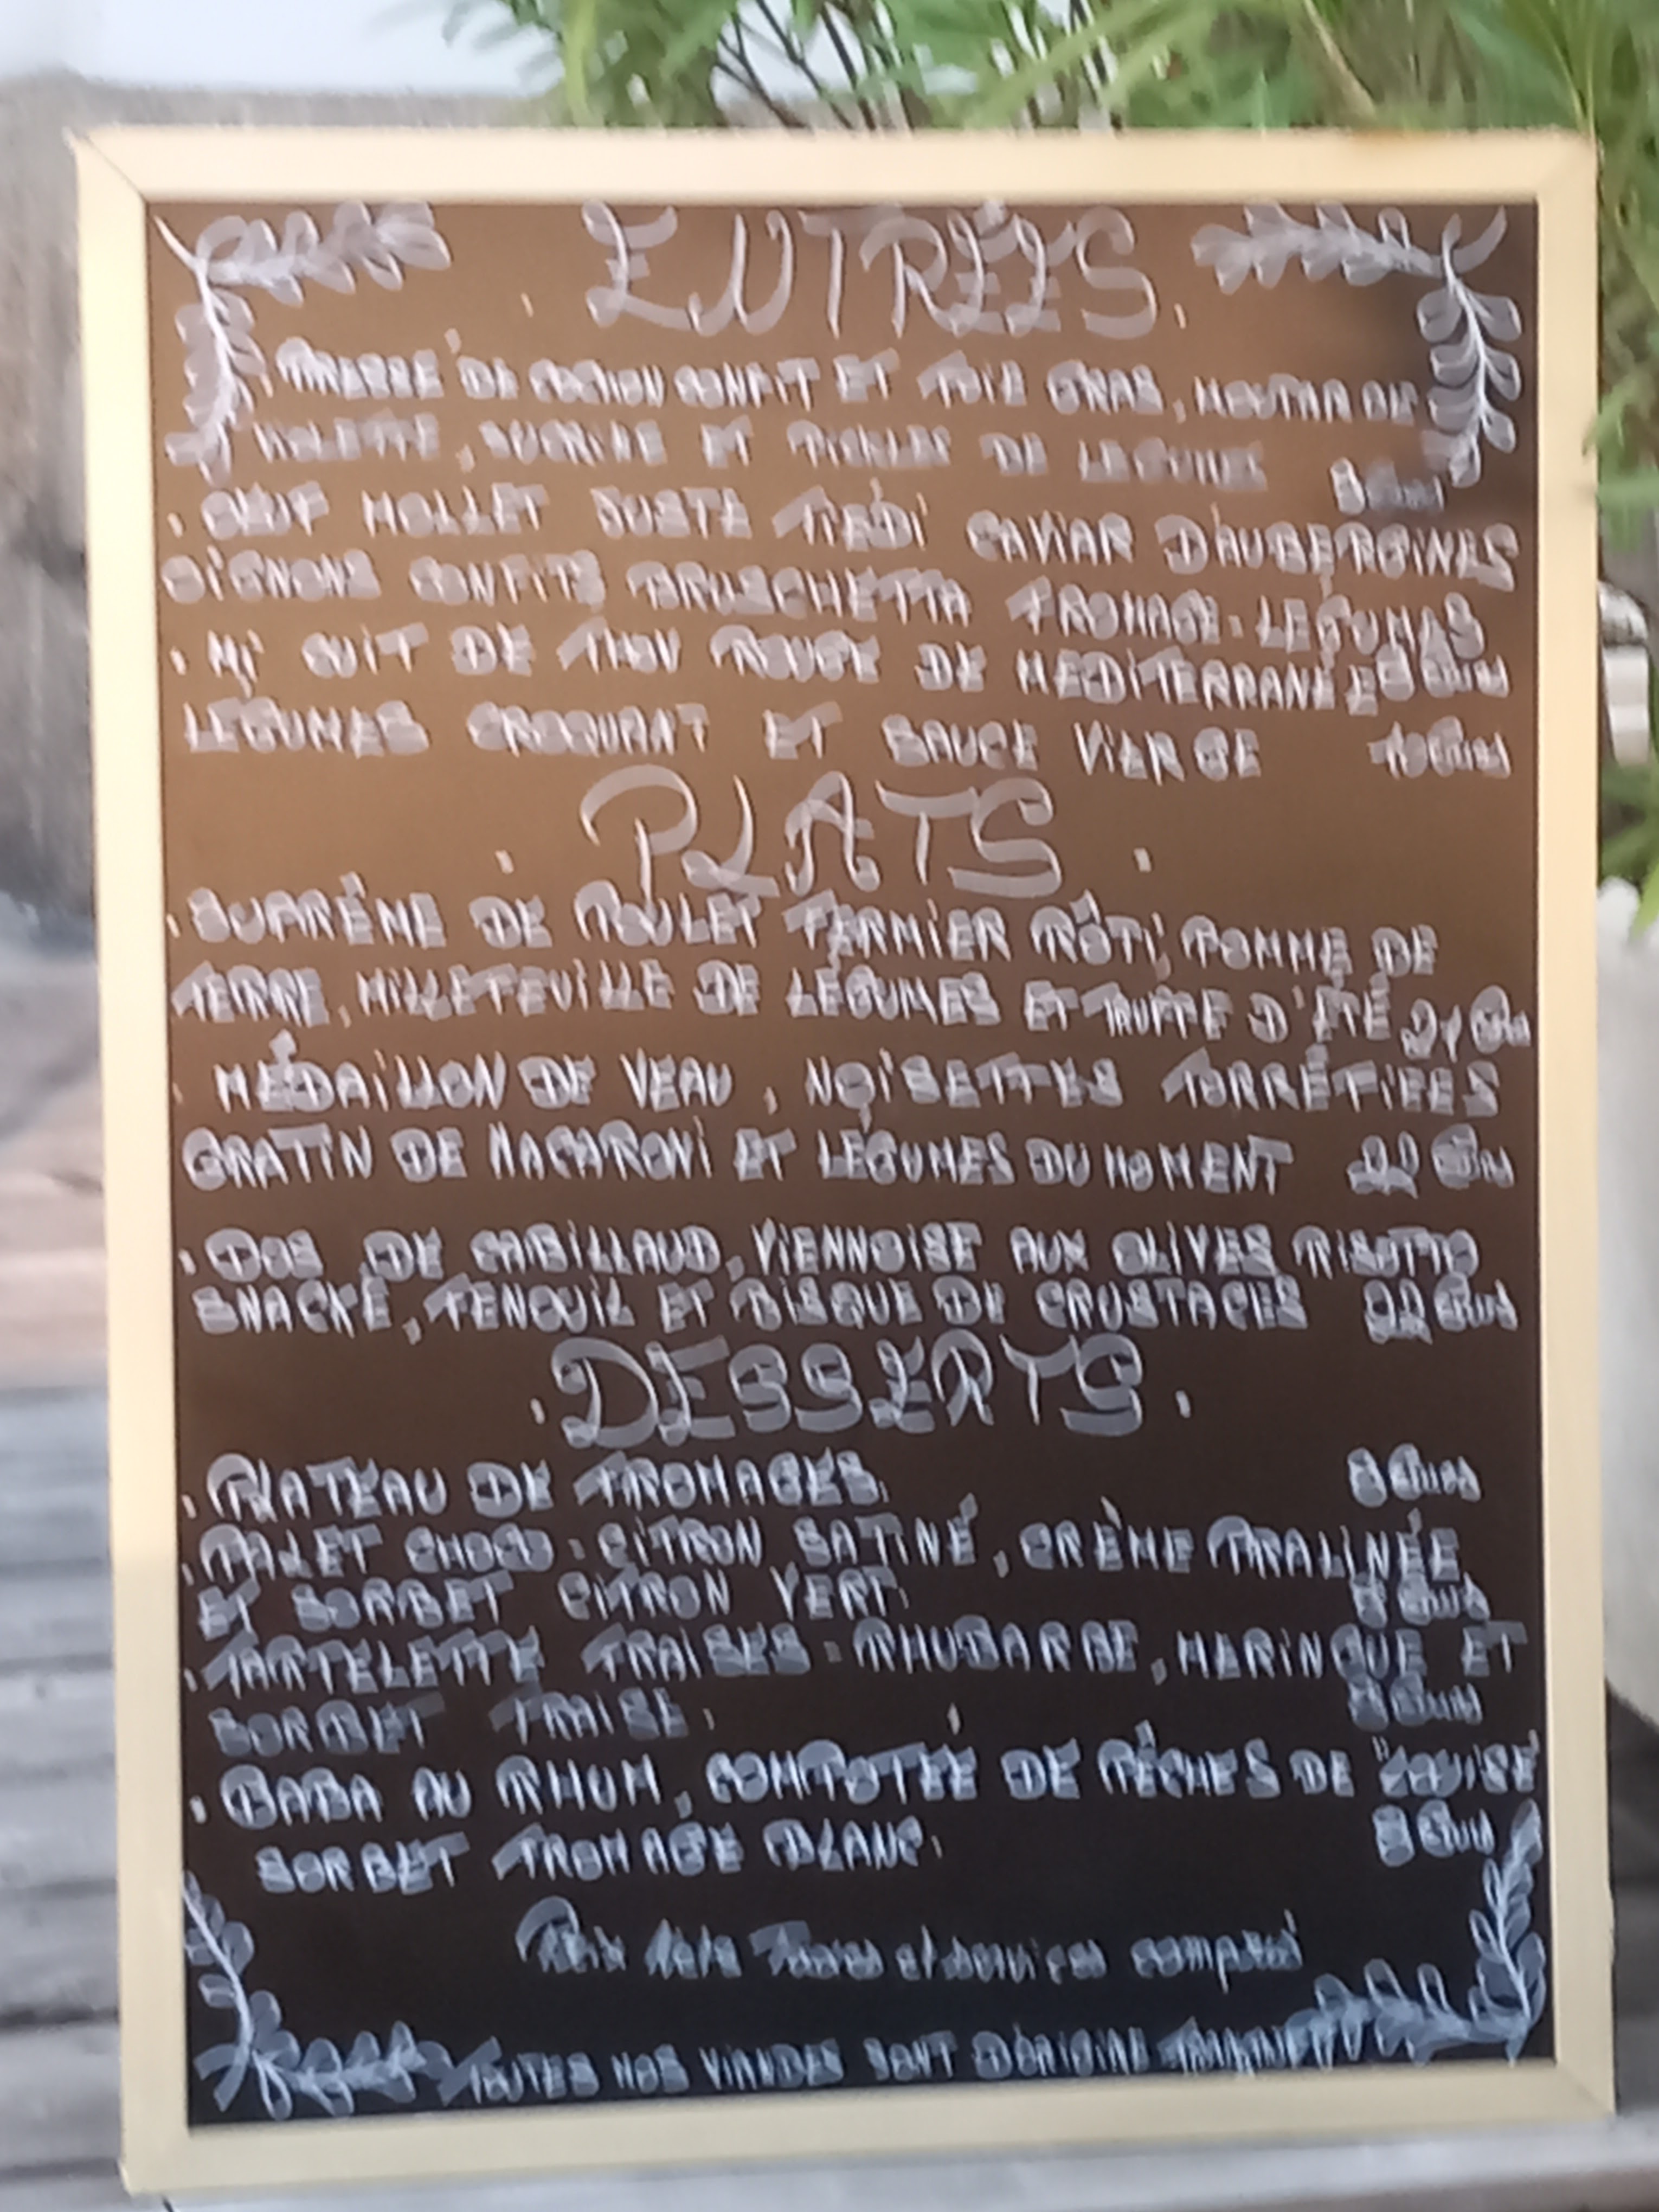 . ENTRÉES .
. PRESSÉ DE COCHON CONFIT ET FOIE GRAS, MOUTARDE
VIOLETTE, SUCRINE ET PICKLES DE LEGUMES 8 Euros
. OEUF MOLLET JUSTE TIÉDI CAVIAR D'AUBERGINES
OIGNONS CONFITS, BRUSCHETTA FROMAGE. LEGUMES
. MI CUIT DE THON ROUGE DE MEDITERRANÉE 8 Euros
LEGUMES CROQUANT ET SAUCE VIERGE 10 Euros
. PLATS .
. SUPRÊME DE POULET FERMIER RÔTI, POMME DE
TERRE, MILLEFEUILLE DE LÉGUMES ET TRUFFE D'ÉTÉ 21 Euros
. MÉDAILLON DE VEAU, NOISETTES TORRÉFIEES
GRATIN DE MACARONI ET LÉGUMES DU MOMENT 22 Euros
. DOS DE CABILLAUD, VIENNOISE AUX OLIVES RISOTTO
SNACKÉ, FENOUIL ET BISQUE DE CRUSTACES 22 Euros
. DESSERTS .
. PLATEAU DE FROMAGES. 8 Euros
. PALET CHOCO. CITRON SATINÉ, CRÈME PRALINÉE
ET SORBET CITRON VERT. 8 Euros
. TARTELETTE FRAISES. RHUBARBE, MERINGUE ET
SORBET FRAISE. 8 Euros
. BABA AU RHUM, COMPOTÉE DE PÊCHES DE "LOUISE"
SORBET FROMAGE BLANC. 8 Euros
Prix Nets Taxes et services compris
TOUTES NOS VIANDES SONT D'ORIGINE